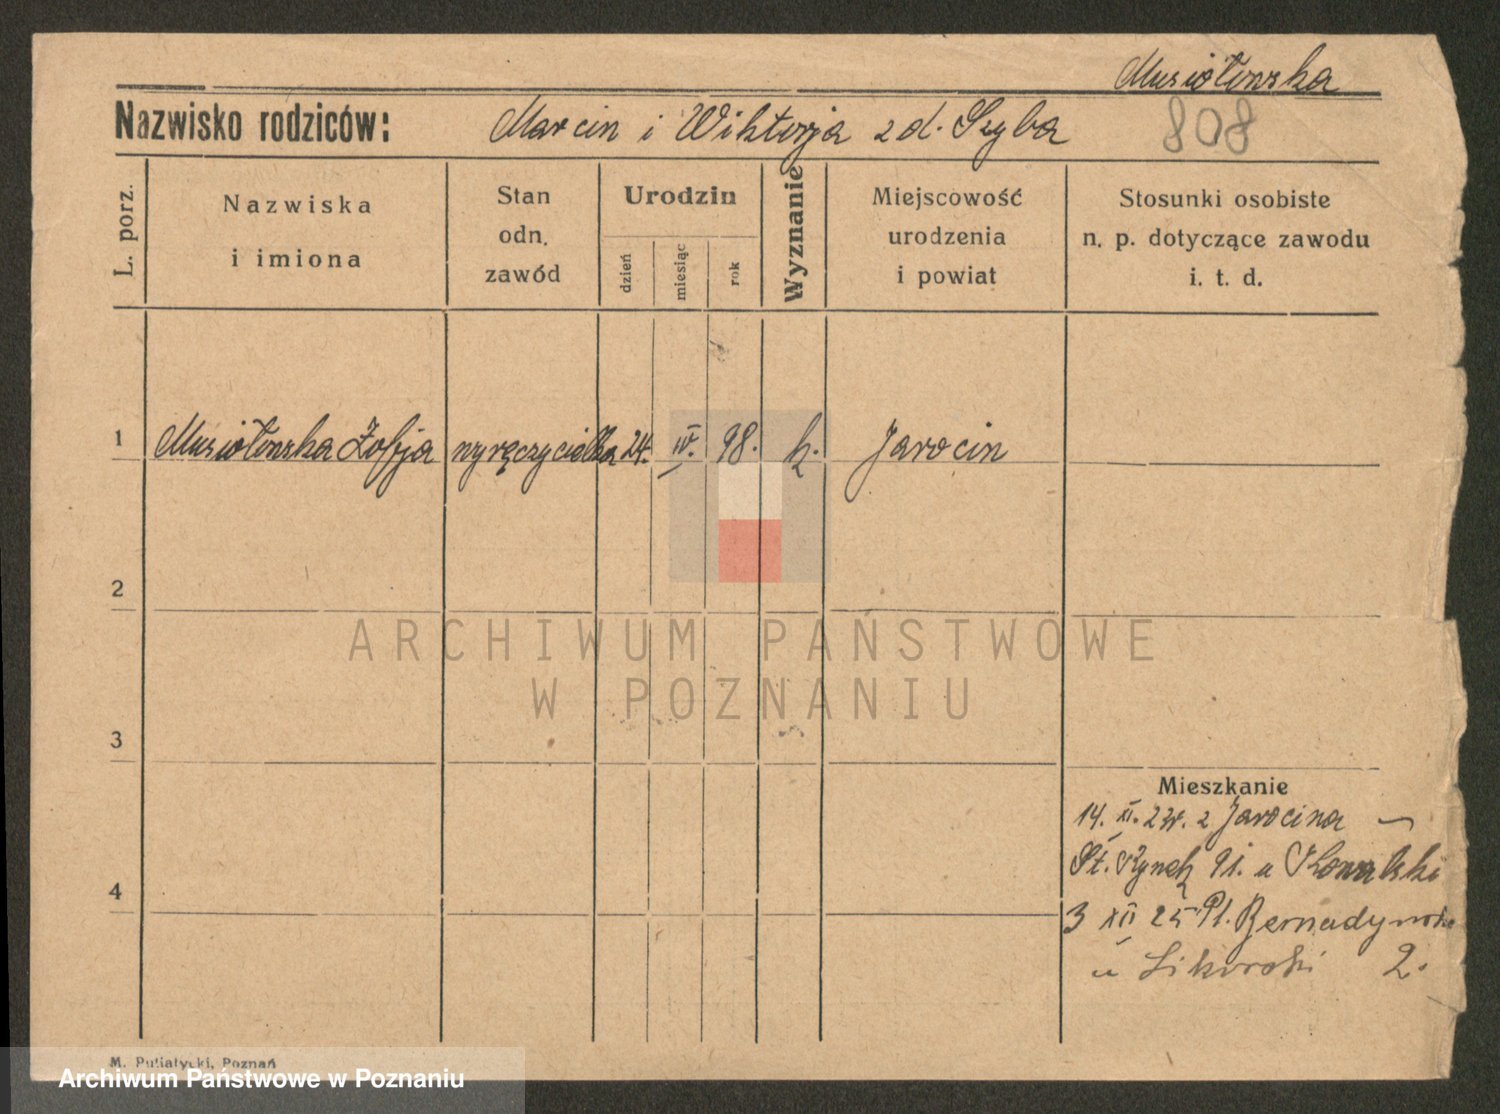 Musiołowska
Nazwisko rodziców: Marcin i Wiktorja z d. Szyba 808
L. porz.
Nazwiska
i imiona
Stan
odn.
zawód
Urodzin
dzień
miesiąc
rok
Wyznanie
Miejscowość
urodzenia
i powiat
Stosunki osobiste
n. p. dotyczące zawodu
i. t. d.
1 Musiołowska Zofja wyręczycielka 24. IV. 98. k. Jarocin
2
ARCHIWUM PAŃSTWOWE
W POZNANIU
3
Mieszkanie
14. XI. 23r. z Jarocina
St. Rynek 91. u Kowalski
4
3 XII 25 Pl. Bernadyński
u Sikorski 2.
M. Putiatycki, Poznań
Archiwum Państwowe w Poznaniu